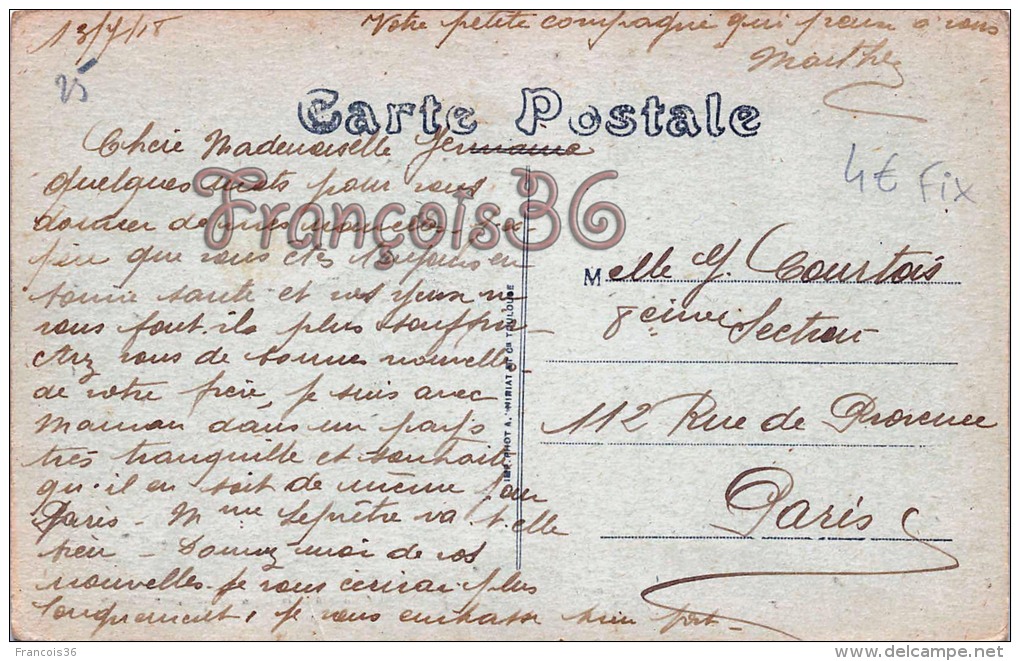 13/7/18
Votre petite compagne qui pense à vous
Marthe
25
Carte Postale
4€ Fix
Chère Mademoiselle Germaine
quelques mots pour vous
donner de mes nouvelles. J'es-
père que vous êtes toujours en
bonne santé et vos yeux ne
vous font-ils plus souffrir
Avez vous de bonnes nouvelles
de votre frère, je suis avec
Maman dans un pays
très tranquille et souhaite
qu'il en soit de même pour
Paris - Mme Leprêtre va t'elle
bien - Donnez moi de vos
nouvelles. Je vous écrirai plus
longuement, je vous embrasse bien fort -
Melle G. Courtois
8eime Section
112 Rue de Provence
Paris
IMP. PHOT A. THIRIAT ET Cie TOULOUSE
François36
François36
www.delcampe.net